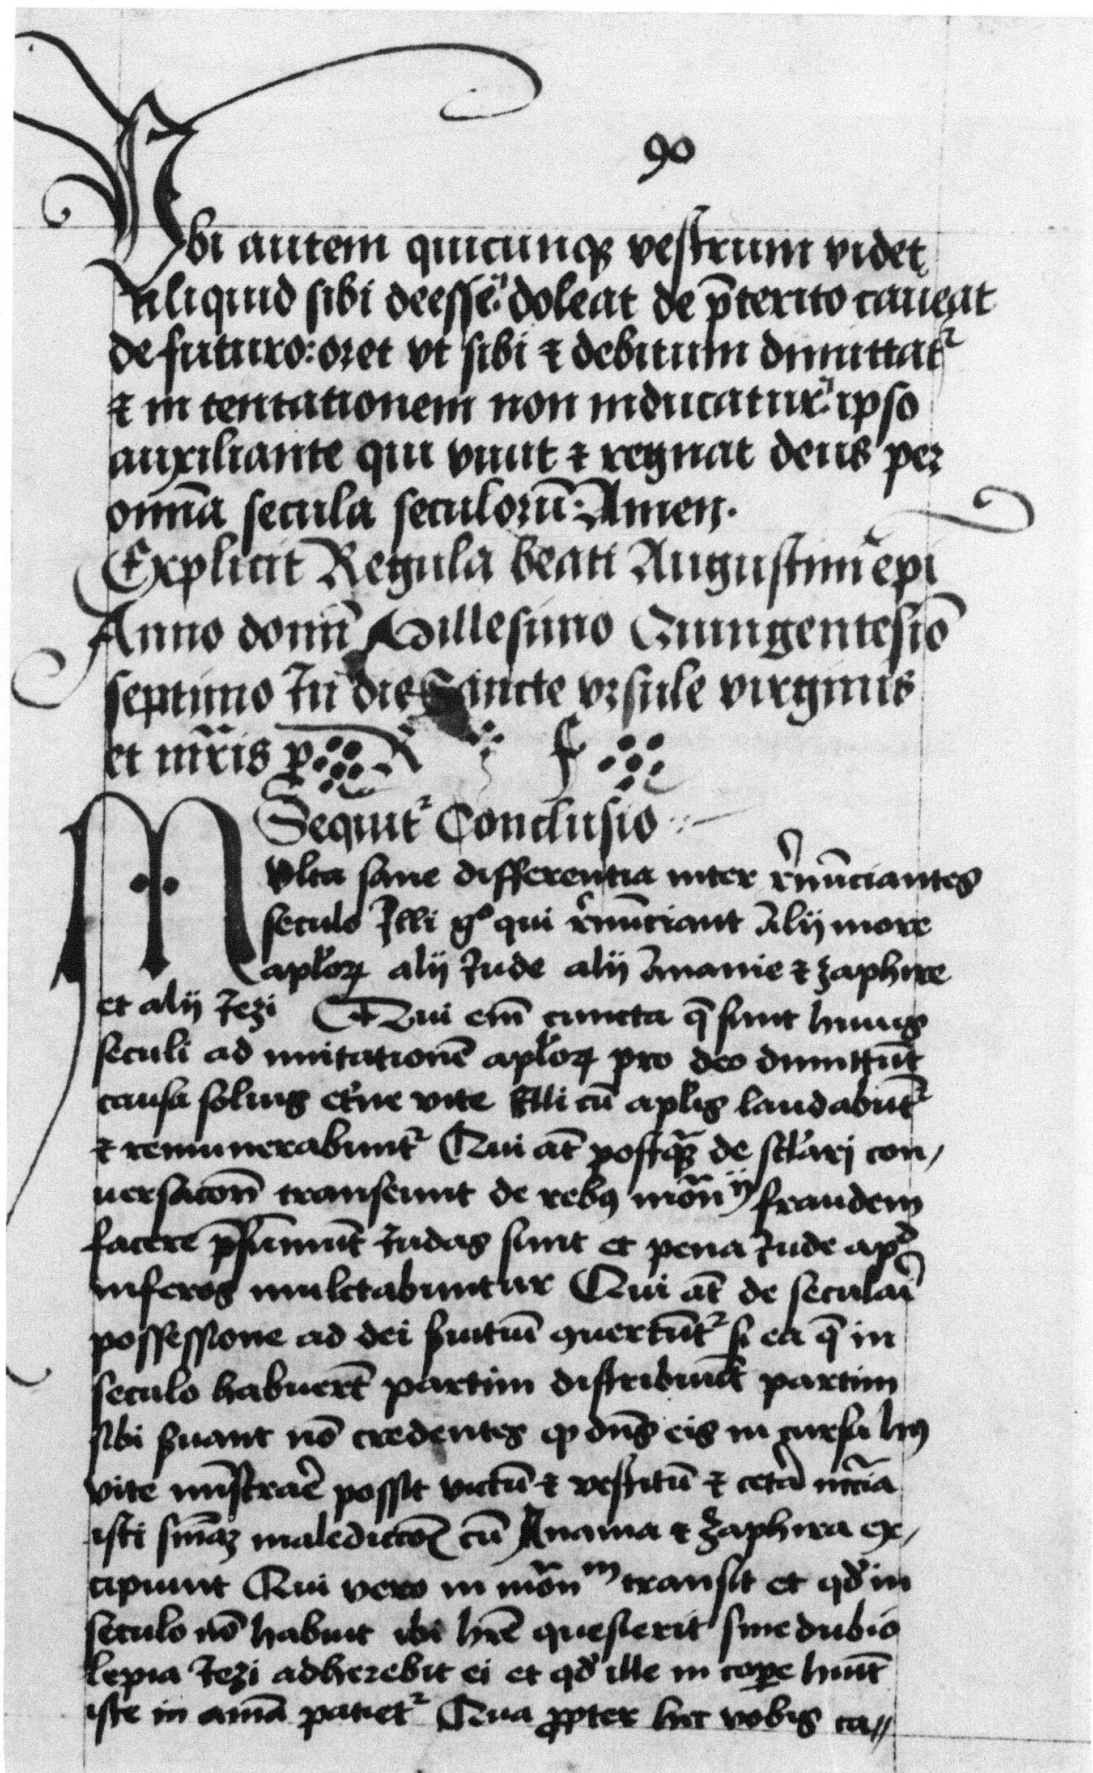 90
Vbi autem quicunqꝫ vestrum videt
aliquid sibi deesse: doleat de p̄terito caueat
de futuro: oret vt sibi ⁊ debitum dimittat᷑
⁊ in tentationem non inducatur: ipso
auxiliante qui viuit ⁊ regnat deus per
omīa secula seculorū: Amen.
Explicit Regula beati Augustini ep̄i
Anno domī Millesimo Quingentesīo
septimo In die Sancte vrsule virginis
et mr̄is p̲ R F
Sequit᷑ Conclusio
Multa sane differentia inter r̄nūciantes
seculo Illi gͦ qui r̄nūciant Alij more
apl̄oꝝ alij Iude alij Ananie ⁊ zaphire
et alij Iezi Qui em̄ cuncta q̄ sunt huius
seculi ad imitationē apl̄oꝝ pro deo dimittūt
causa solius et̄ne vite Illi cū apl̄is laudabūt᷑
⁊ remunerabunt᷑ Qui at̄ postqꝫ de sc̄lari con/
uersacōn transeunt de rebꝰ mōn ij fraudem
facere p̄sumunt Iudas sunt et pena Iude apd̄
inferos mulctabuntur Qui at̄ de seculari
possessione ad dei s̄uitiū ꝯuertūt᷑ si ea q̄ in
seculo habuert̄ partim distribuūt partim
sibi s̄uant nō credentes ꝙ dn̄s eis in cursu hꝰ
vite mīstrare possit victū ⁊ vestitū ⁊ cetā nc̄cia
isti maledictōꝫ cū Anania ⁊ zaphira ex/
cipiunt Qui vero in mōn m transit et qd̄ in
seculo nō habuit ibi hr̄e quesierit sine dubio
lepra Iezi adherebit ei et qd̄ ille in corpe huit̄
iste in aīma patiet᷑ Qua ꝓpter hec vobis ca//